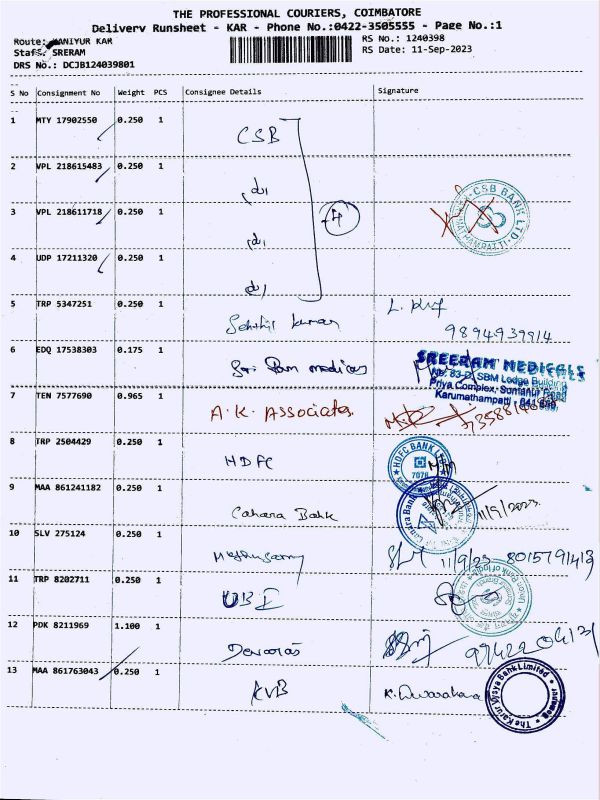 THE PROFESSIONAL COURIERS, COIMBATORE
Delivery Runsheet - KAR - Phone No.:0422-3505555 - Page No.:1
Route: KANIYUR KAR
RS No.: 1240398
Staff: SRERAM
RS Date: 11-Sep-2023
DRS No.: DCJB124039801
S No Consignment No Weight PCS Consignee Details Signature
1 MTY 17902550 0.250 1 CSB
2 VPL 218615483 0.250 1
3 VPL 218611718 0.250 1 4
CSB BANK LTD
4 UDP 17211320 0.250 1
5 TRP 5347251 0.250 1 Senthil kumar
9894939914
6 EDQ 17538303 0.175 1 Sri Ram medicas
SREERAM MEDICALS
No: 83-D, SBM Lodge Building
Priya Complex, Somanur Road
Karumathampatti
7 TEN 7577690 0.965 1 A.K. Associates
8 TRP 2504429 0.250 1 HDFC
HDFC BANK LTD
9 MAA 861241182 0.250 1 Canara Bank
Canara Bank
11/9/2023
10 SLV 275124 0.250 1
11/9/23 8015791413
11 TRP 8202711 0.250 1 UBI
Union Bank of India
12 PDK 8211969 1.100 1
13 MAA 861763043 0.250 1 KVB K.
The Karur Vysya Bank Limited